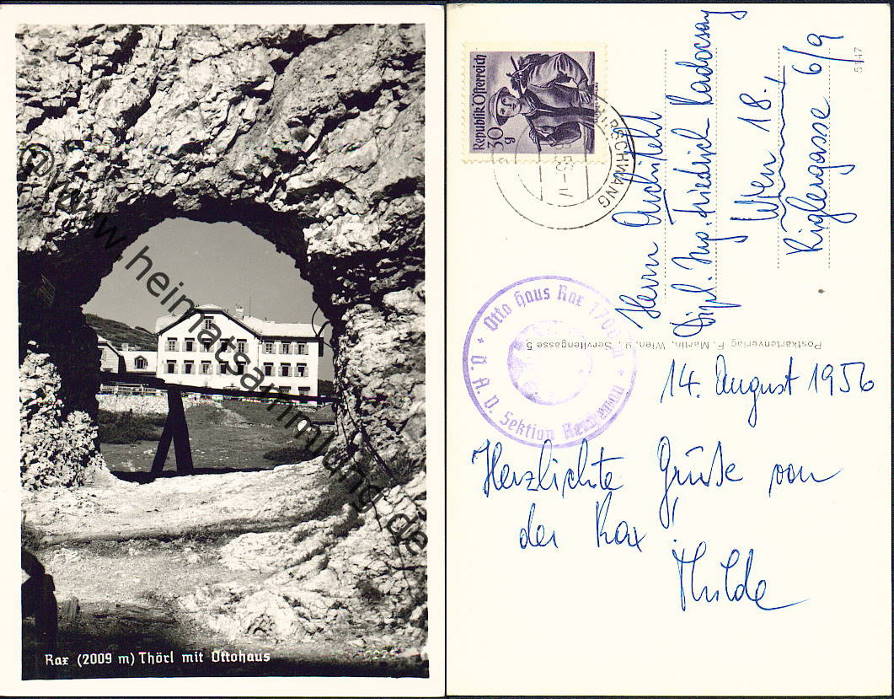 @www.heimatsammlung.de
Rax (2009 m) Thörl mit Ottohaus
Republik Österreich
30 g
Otto Haus Rax
Sektion
Herrn Architekt
Dipl. Ing. Friedrich Radocsay
Wien 18.,
Riglergasse 6/9
5147
Postkartenverlag F. Martin, Wien, 9., Servitengasse 5
14. August 1956
Herzlichte Grüße von
der Rax!
Thilde